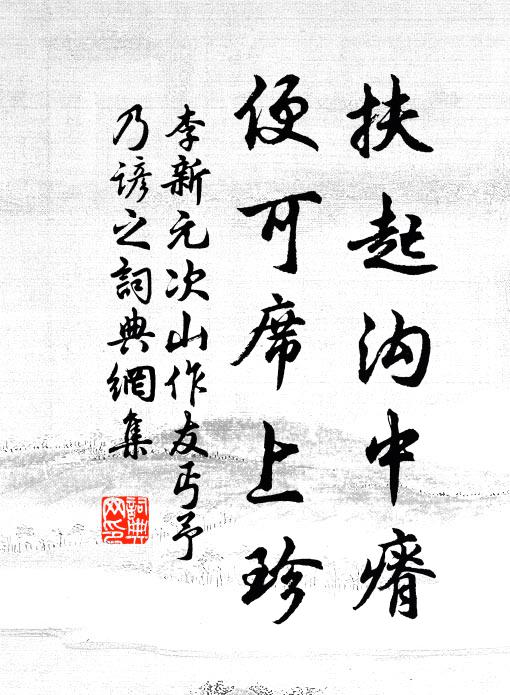 扶起沟中瘠
便可席上珍
李新元次山作友丐予
乃谚之詞典網集
詞典網印